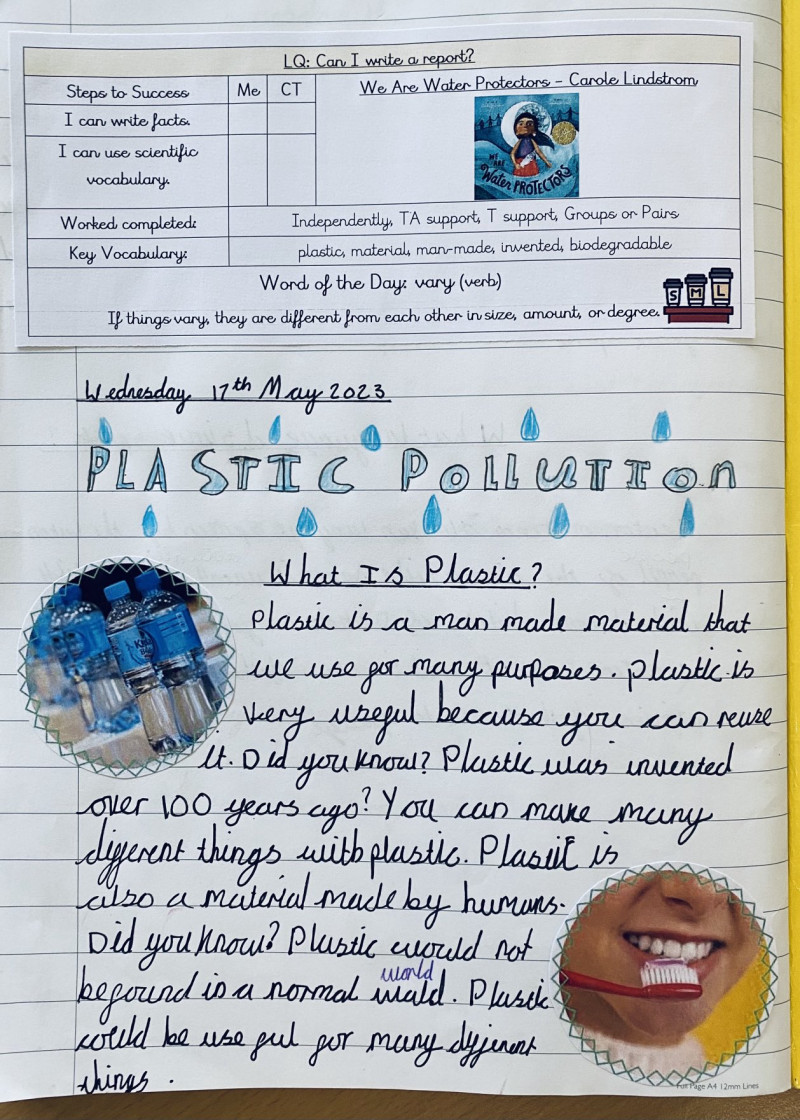 LQ: Can I write a report?
Steps to Success
Me
CT
We Are Water Protectors - Carole Lindstrom
I can write facts.
I can use scientific
vocabulary.
WE ARE
Water PROTECTORS
Worked completed:
Independently, TA support, T support, Groups or Pairs
Key Vocabulary:
plastic, material, man-made, invented, biodegradable
Word of the Day: vary (verb)
If things vary, they are different from each other in size, amount, or degree.
S M L
Wednesday 17th May 2023
PLASTIC POLLUTION
What Is Plastic?
Plastic is a man made material that
we use for many purposes. plastic is
very useful because you can reuse
it. Did you know? Plastic was invented
over 100 years ago? You can make many
different things with plastic. Plastic is
also a material made by humans.
Did you know? Plastic would not
world
be found in a normal wald. Plastic
could be use ful for many different
things.
Page A4 12mm Lines